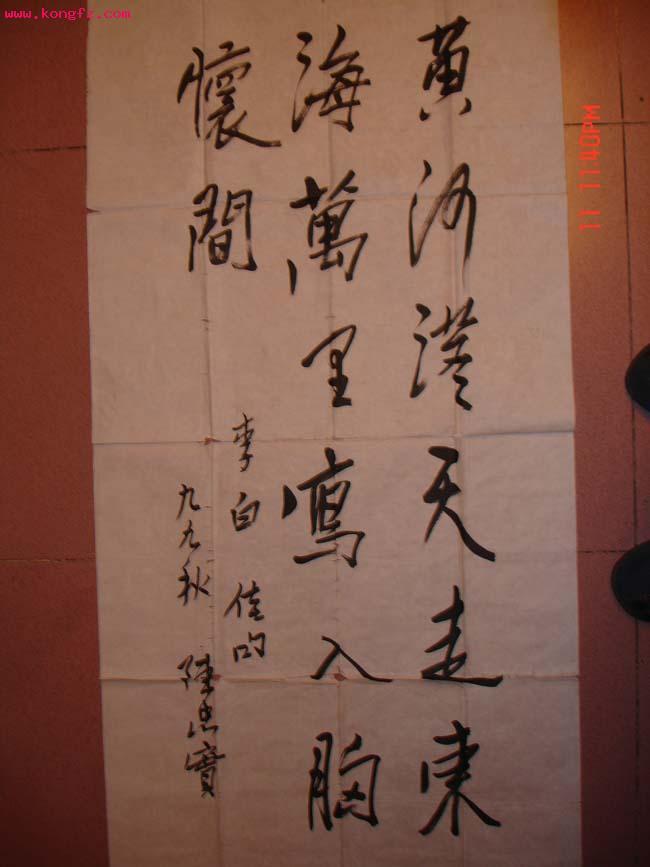 www.kongfz.com
黄河落天走東
海萬里寫入胸
懷間
李白 佳句
九九秋 陳忠實
11 11:40PM